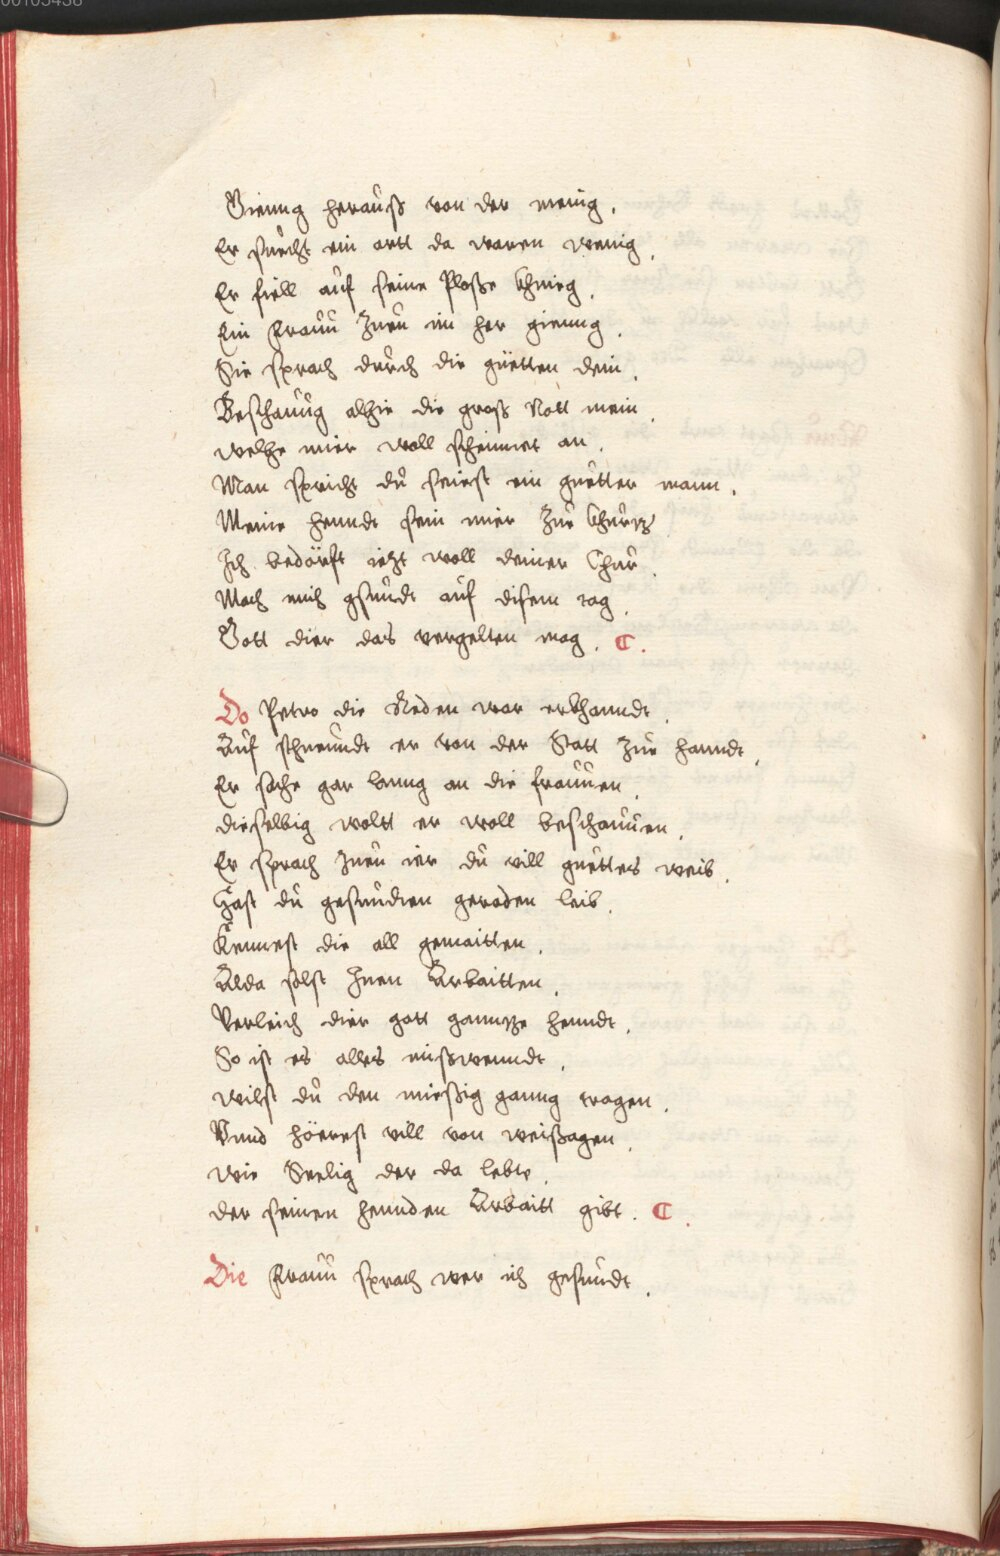 00105438
Gieng herauß von der menig.
Er suecht ein ortt da waren wenig.
Er fiell auf seine Ploße Khnieg.
Ein Frauu Zueu im her gieung.
Sie sprach durch die güetten dein.
Beschauug alhie die groß Nott mein.
welhe mier woll scheinnet an.
Man spricht dú seiest ein guetter mann.
Meine henndt sein mier Zúe Khurtz.
Ich bedörfft iezt woll deiner Chúr.
Mach mich gsundt auf disem tag.
Gott dier das vergelten mag. C.
Do Petro die Reden war erkhanndt.
Auf schneúndt er von der Statt Zúe hanndt.
Er sache gar lanng an die frauuen.
dieselbig woltt er woll beschauuen.
Er sprach Zueu ier dú vill guettes weib.
Hast dú gesundten geraden leib.
Kennest die all gemaitten.
Alda solst Inen Arbaitten.
Verleich dier gott gannze henndt.
So ist es alles mißwenndt.
wilst dú den mießig ganng tragen.
Vnnd höerest vill von weißagen.
wie Seelig der da lebt.
der seinen hennden Arbaitt gibt. C.
Die Frauu sprach wer ich gesúndt.